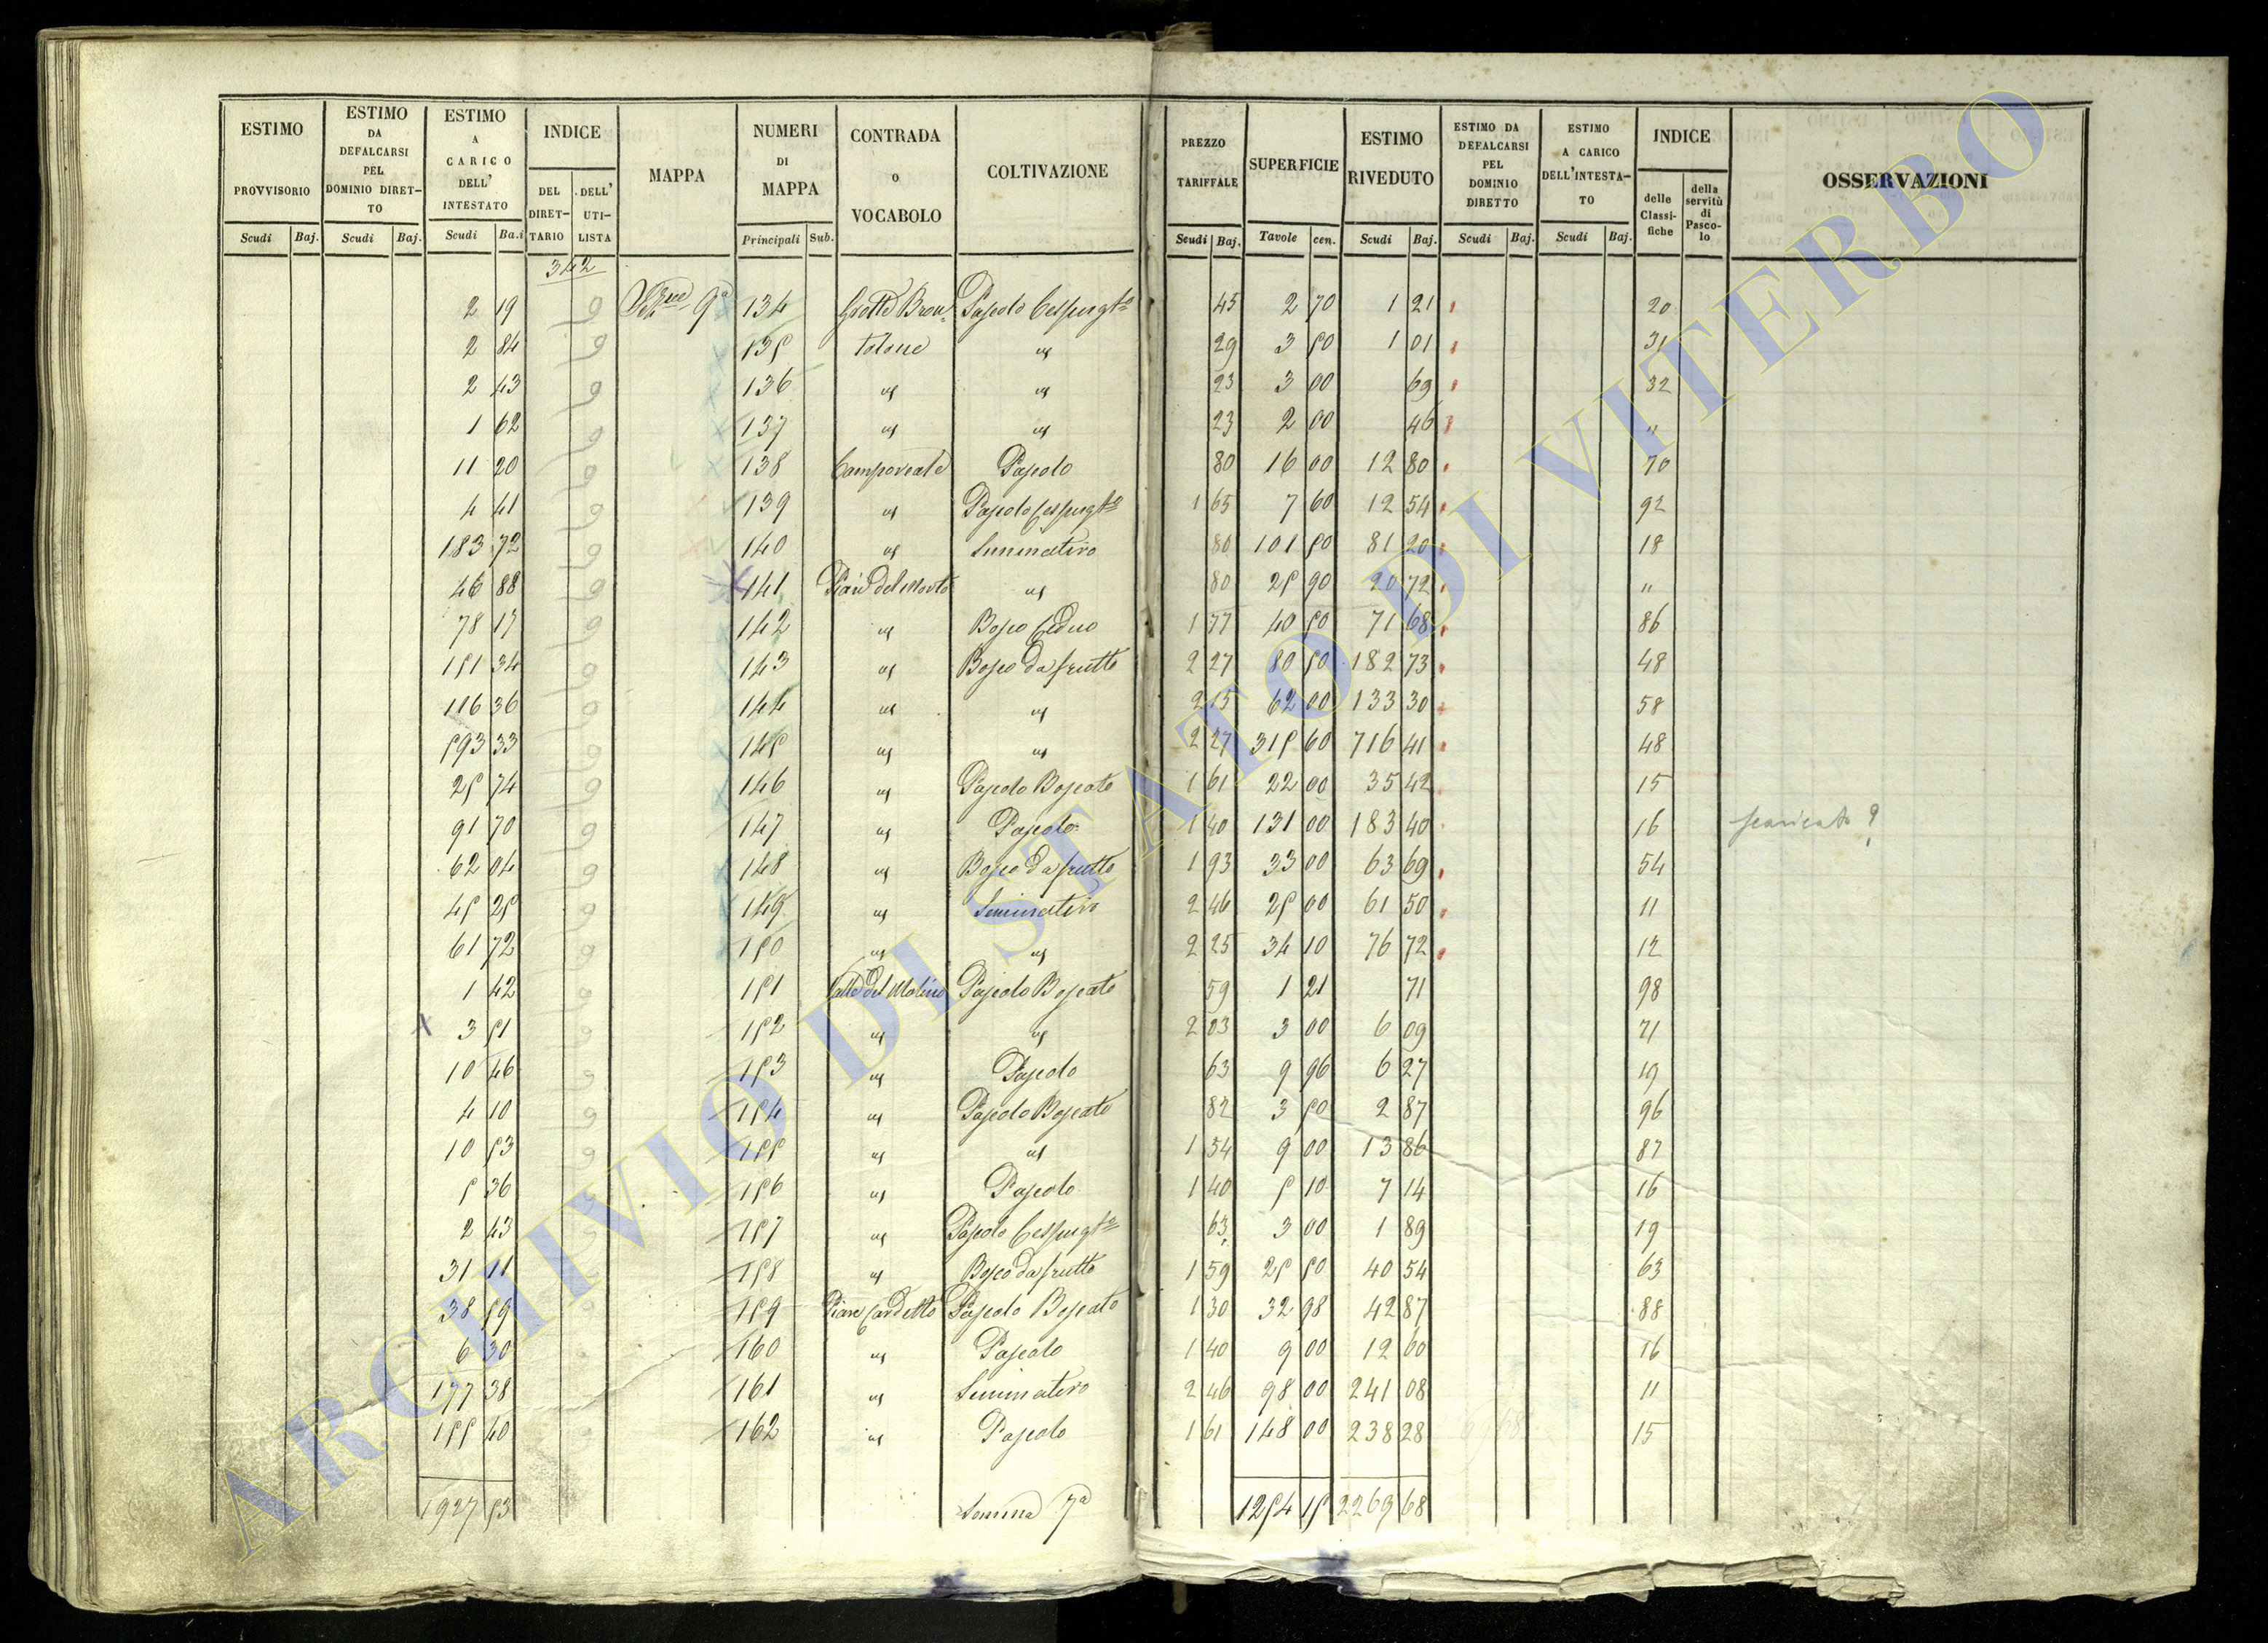 ESTIMO PROVVISORIO | ESTIMO DA DEFALCARSI PEL DOMINIO DIRET-TO | ESTIMO A CARICO DELL' INTESTATO | INDICE | MAPPA | NUMERI DI MAPPA | CONTRADA O VOCABOLO | COLTIVAZIONE | PREZZO TARIFFALE | SUPERFICIE | ESTIMO RIVEDUTO | ESTIMO DA DEFALCARSI PEL DOMINIO DIRETTO | ESTIMO A CARICO DELL'INTESTA-TO | INDICE | OSSERVAZIONI
DEL DIRET-TARIO | DELL' UTI-LISTA | delle Classi-fiche | della servitù di Pasco-lo
Scudi | Baj. | Scudi | Baj. | Scudi | Ba.i | Principali | Sub. | Scudi | Baj. | Tavole | cen. | Scudi | Baj. | Scudi | Baj. | Scudi | Baj.
342
2 19 | 9ª | 134 | Grotte Bron- | Pascolo Cespugto | 45 | 2 70 | 1 21 | 20
2 84 | 135 | tolone | " | 29 | 3 50 | 1 01 | 31
2 43 | 136 | " | " | 23 | 3 00 | 69 | 32
1 62 | 137 | " | " | 23 | 2 00 | 46 | "
11 20 | 138 | Camporeale | Pascolo | 80 | 16 00 | 12 80 | 70
4 41 | 139 | " | Pascolo Cespugto | 1 65 | 7 60 | 12 54 | 92
183 72 | 140 | " | Seminativo | 80 | 101 50 | 81 20 | 18
46 88 | 141 | Pian del Morto | " | 80 | 25 90 | 20 72 | "
78 17 | 142 | " | Bosco Ceduo | 1 77 | 40 50 | 71 68 | 86
151 34 | 143 | " | Bosco da frutto | 2 27 | 80 50 | 182 73 | 48
116 36 | 144 | " | " | 2 15 | 62 00 | 133 30 | 58
593 33 | 145 | " | " | 2 27 | 315 60 | 716 41 | 48
25 74 | 146 | " | Pascolo Boscato | 1 61 | 22 00 | 35 42 | 15
91 70 | 147 | " | Pascolo | 1 40 | 131 00 | 183 40 | 16 | scaricato ?
62 04 | 148 | " | Bosco da frutto | 1 93 | 33 00 | 63 69 | 54
45 25 | 149 | " | Seminativo | 2 46 | 25 00 | 61 50 | 11
61 72 | 150 | " | " | 2 25 | 34 10 | 76 72 | 12
1 42 | 151 | Valle del Molino | Pascolo Boscato | 59 | 1 21 | 71 | 98
X 3 51 | 152 | " | " | 2 03 | 3 00 | 6 09 | 71
10 46 | 153 | " | Pascolo | 63 | 9 96 | 6 27 | 19
4 10 | 154 | " | Pascolo Boscato | 82 | 3 50 | 2 87 | 96
10 53 | 155 | " | " | 1 54 | 9 00 | 13 86 | 87
5 36 | 156 | " | Pascolo | 1 40 | 5 10 | 7 14 | 16
2 43 | 157 | " | Pascolo Cespugto | 63 | 3 00 | 1 89 | 19
31 11 | 158 | " | Bosco da frutto | 1 59 | 25 50 | 40 54 | 63
38 59 | 159 | Pian Cardetto | Pascolo Boscato | 1 30 | 32 98 | 42 87 | 88
6 30 | 160 | " | Pascolo | 1 40 | 9 00 | 12 60 | 16
177 38 | 161 | " | Seminativo | 2 46 | 98 00 | 241 08 | 11
155 40 | 162 | " | Pascolo | 1 61 | 148 00 | 238 28 | 15
1927 53 | Somma 7ª | 1254 15 | 2269 68
ARCHIVIO DI STATO DI VITERBO